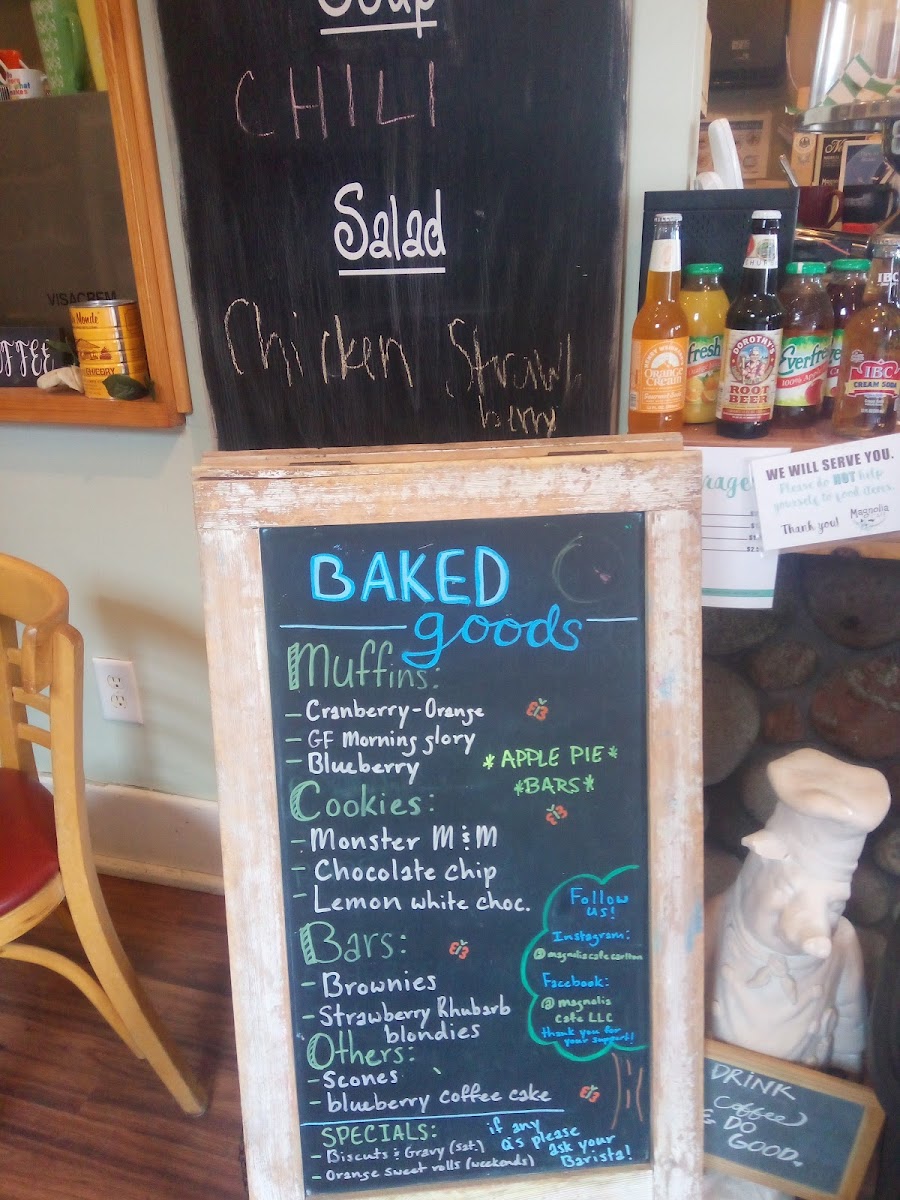 Soup
CHILI
Salad
Chicken Strawberry
VISACREM
COFFEE
ORANGE
CREAM
fresh
DOROTHY'S
ROOT
BEER
Everfresh
100%
IBC
IBC
CREAM SODA
WE WILL SERVE YOU.
Please do NOT help
yourself to food items.
Thank you! Magnolia
BAKED
goods
Muffins:
- Cranberry-Orange
- GF Morning glory
- Blueberry
*APPLE PIE*
*BARS*
Cookies:
- Monster M & M
- Chocolate chip
- Lemon white choc.
Bars:
- Brownies
- Strawberry Rhubarb
blondies
Others:
- Scones
- blueberry coffee cake
Follow
us!
Instagram:
@magnoliacafecarlton
Facebook:
@magnolia
Cafe LLC
thank you for
your support!
SPECIALS:
- Biscuits & Gravy (sat.)
- Orange sweet rolls (weekends)
if any
Q's please
ask your
Barista!
DRINK
Coffee
& DO
GOOD.